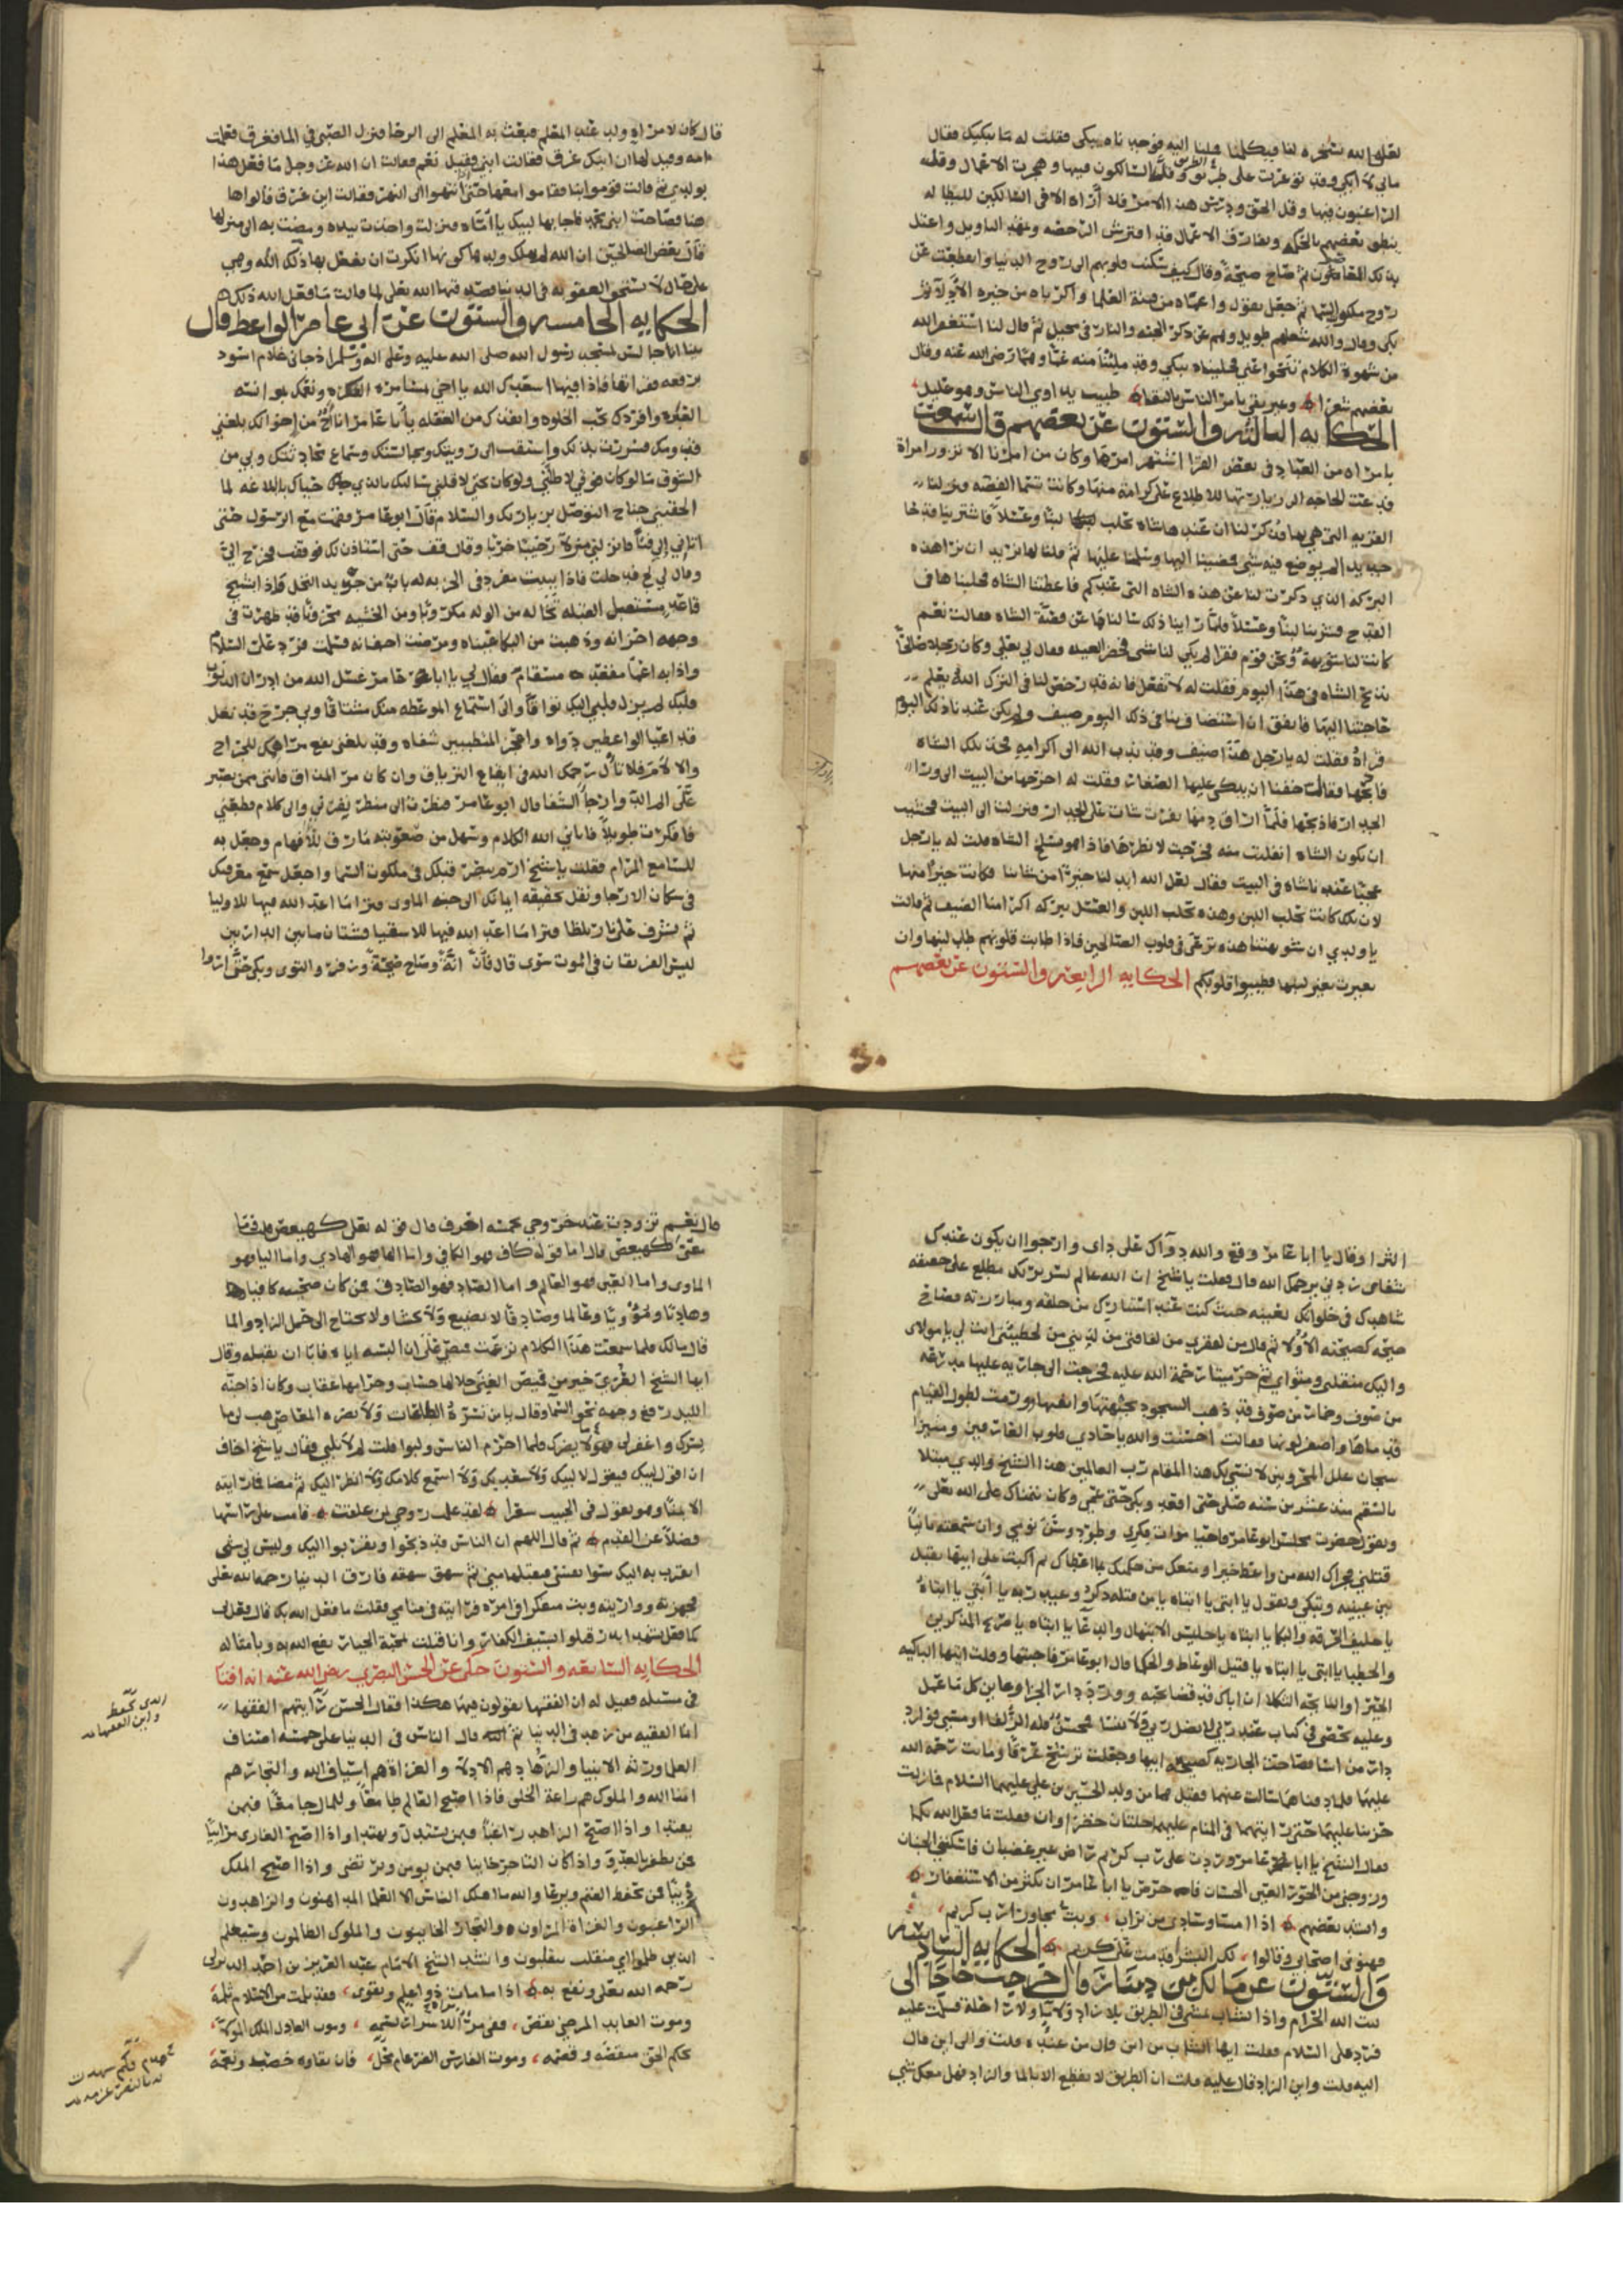 لعل الله يسخره لنا فيكلمنا فملنا اليه فوجدناه يبكي فقلت له ما يبكيك فقال
مالي لا ابكي وقد توعرت على الطريق وقل السالكون فيها وهجرت الاعمال وقل
الراغبون فيها وقل الحق ودرس هذا الامر فلا اراه الا في لسان كل بطال
ينطق بالحكمة ويفارق الاعمال قد افترش الرخصة وتمهد التاويل واعتل
بزلل العاصين ثم صاح صيحة وقال كيف سكنت قلوبهم الى روح الدنيا وانقطعت عن
روح ملكوت السما ثم جعل يقول واغماه من فتنة العلما واكرباه من حيرة الادلا ثم
بكى وقال والله شغلهم طويل وهم عن ذكر الجنة والنار في ثم قال لنا استغفر الله
من شهوة الكلام تنحوا عني فخليناه يبكي وقد ملئنا منه غما وهما رضي الله عنه وقال
بعضهم شعرا وغير تقي يامر الناس بالتقا طبيب يداوي الناس وهو عليل
الحكايه الثالثه والستون عن بعضهم قال سمعت
بامراه من العباد في بعض القرا اشتهر امرها وكان من امرنا الا نزور امراة
فدعت الحاجه الى زيارتها للاطلاع على كرامة منها وكانت تسما الفضه ونزلنا
القريه التي هي بها فذكر لنا ان عندها شاه تحلب لبنا وعسلا فاشترينا قدحا
جديدا لم يوضع فيه شي فمضينا اليها وسلمنا عليها ثم قلنا لها نريد ان نرا هذه
البركة الذي ذكرت لنا عن هذه الشاه التي عندكم فاعطتنا الشاه فحلبناها في
القدح فشربنا لبنا وعسلا فلما راينا ذلك سالناها عن قصة الشاه فقالت نعم
كانت لنا شويهة ونحن قوم فقرا لم يكن لنا شي فحضر العيد فقال لي بعلي وكان رجلا صالحا
نذبح الشاه في هذا اليوم فقلت له لا تفعل فانه قد رخص لنا في الترك الله يعلم
حاجتنا اليها فاتفق ان استضافنا في ذلك اليوم ضيف ولم يكن عندنا ذلك اليوم
قراه فقلت له يا رجل هذا ضيف وقد ندب الله الى اكرامه فخذ تلك الشاه
فاذبحها فقالت خفنا ان يبكي عليها الصغار فقلت له اخرجها من البيت الى ورا
الجدار فاذبحها فلما اراق دمها نفرت شاة على الجدار ونزلت الى البيت فخشيت
ان تكون الشاه انفلتت منه فخرجت لانظرها فاذا هو يسلخ الشاه قلت له يا رجل
عجبا عندنا شاه في البيت فقال لعل الله ابدلنا خيرا من شاتنا فكانت خيرا منها
لان تلك كانت تحلب اللبن وهذه تحلب اللبن والعسل ببركة اكرامنا الضيف ثم قالت
يا ولدي ان شويهتنا هذه ترعى في قلوب الصالحين فاذا طابت قلوبهم طاب لبنها وان
تغيرت تغير لبنها فطيبوا قلوبكم الحكايه الرابعه والستون عن بعضهم
قال كان لامراه ولد عند المعلم فبعث به المعلم الى الرحا فنزل الصبي في الما فغرق فعلمت
امه وقيل لها ان ابنك غرق فقالت ابني فقيل نعم فقالت ان الله عز وجل ما فعل هذا
بولدي ثم قالت قوموا بنا فقاموا معها حتى انتهوا الى النهر فقالت اين غرق قالوا ها
هنا فصاحت ابني محمد فاجابها لبيك يا اماه فنزلت واخذت بيده ومضت به الى منزلها
قال بعض الصالحين ان الله لم يهلك ولدها لكونها انكرت ان يفعل بها ذلك الله وهي
على حال لا تستحق العقوبه في الدنيا فصدق فيها الله تعلى لما قالت ما فعل الله ذلك
الحكايه الخامسه والستون عن ابي عامر الواعظ قال
بينا انا جالس لمسجد رسول الله صلى الله عليه وعلى اله وسلم اذ جاني غلام اسود
برقعه فقراتها فاذا فيها اسعدك الله يا اخي بمسامرة الفكره ونعمك بموانسه
العبره وافردك بحب الخلوه وانقذك من الغفله يا ابا عامر انا اخ من اخوانك بلغني
قدومك فسررت بذلك واشتقت الى رويتك ومجالستك وسماع محادثتك وبي من
الشوق ما لو كان فوقي لاظلني ولو كان تحتي لاقلني سالتك بالذي حباك بالبلاغه لما
الحقتني جناح التوصل بزيارتك والسلام قال ابو عامر فقمت مع الرسول حتى
اتا بي الى قبا فانزلني منزلا رحيبا خربا وقال قف حتى استاذن لك فوقفت فخرج الي
وقال لي لج فدخلت فاذا ببيت مفرد في الخربه له باب من جريد النخل فاذا بشيخ
قاعد مستقبل القبله تخاله من الوله مكروبا ومن الخشيه محزونا قد ظهرت في
وجهه احزانه وذهبت من البكا عيناه ومرضت اجفانه فسلمت فرد علي السلام
واذا به اعما مقعد مسقام فقال لي يا ابا عامر غسل الله من ادران الذنوب
قلبك لم يزل قلبي اليك تواقا والى استماع الموعظه منك مشتاقا وبي جرح قد نغل
قد اعيا الواعظين دواه واعجز المتطببين شفاه وقد بلغني نفع مراهمك للجراح
والالام فلا تال رحمك الله في ايقاع الترياق وان كان مر المذاق فانني ممن يصبر
على الم الدوا رجا الشفا قال ابو عامر فنظرت الى منظر بهرني والى كلام قطعني
فافكرت طويلا فاتاني الله الكلام وسهل من صعوبته ما رق للافهام وجعل به
للسامع المرام فقلت يا شيخ ارم ببصر قلبك في ملكوت السما واجعل سمع معرفتك
في سكان الارجا وتنقل بحقيقه ايمانك الى جنه الماوى فترا ما اعد الله فيها للاوليا
ثم تشرف على نار تلظا فترا ما اعد الله فيها للاشقيا فشتان ما بين الدارين
ليس الفريقان في الموت سوى قال فان انة وصاح صيحة والتوى وبكى حتى اروا
الثرا وقال يا ابا عامر وقع والله دواك على داي وارجوا ان يكون عندك
شفاي زدني يرحمك الله قال فقلت يا شيخ ان الله عالم بسريرتك مطلع على حقيقه
شاهدك في خلواتك بعينه حيث كنت عند استتارك من خلقه ومبارزته فصاح
صيحه كصيحته الاولا ثم قال من لفقري من لفاقتي من لذنبي من لخطيئتي انت لي يا مولاي
واليك منقلبي ومثواي ثم خر ميتا رحمة الله عليه فخرجت الى جاريه عليها مدرعه
من صوف وخمار من صوف قد ذهب السجود بجبهتها وانفها وورمت لطول القيام
قدماها واصفر لونها فقالت احسنت والله يا حادي قلوب العارفين ومثير
سجان علل المحزونين لا نسي لك هذا المقام رب العالمين هذا الشيخ والدي مبتلا
بالسقم منذ عشرين سنه صلى حتى اقعد وبكى حتى عمي وكان يتمناك على الله تعلى
ويقول حضرت مجلس ابو عامر فاحيا موات فكري وطرد وسن نومي وان سمعته ثانيا
قتلني فجزاك الله من واعظ خيرا ومتعك من حكمتك بما اعطاك ثم اكبت على ابيها تقبل
بين عينيه وتبكي وتقول يا ابتي يا ابتاه يا من قتله ذكر وعيد ربه يا ابتي يا ابتاه
يا حليف الحرقه والبكا يا ابتاه يا جليس الابتهال والدعا يا ابتاه يا صريع المذكرين
والخطبا يا ابتي يا ابتاه يا قتيل الوعاظ والحكما قال ابو عامر فاجبتها وقلت ايتها الباكيه
الحيرا والناعيه الثكلا ان اباك قد قضا نحبه وورد دار الجزا وعاين كل ما عمل
وعليه يحصى في كتاب عند ربي لا يضل ربي ولا ينسا فمحسن فله الزلفا او مسي فوارد
دار من اسا فصاحت الجاريه كصيحه ابيها وجعلت ترشح عرقا وماتت رحمة الله
عليها فلما دفناهما سالت عنهما فقيل هما من ولد الحسين بن علي عليهما السلام فما زلت
حزينا عليهما حتى رايتهما في المنام عليهما حلتان خضرا وان فقلت ما فعل الله بكما
فقال الشيخ يا ابا عامر وردت على رب كريم راض غير غضبان فاسكنني الجنان
وزوجني من الحور العين الحسان فاحرص يا ابا عامر ان تكثر من الاستغفار
وانشد بعضهم اذا امسا وسادي من تراب وبت مجاور الرب كريم
فهنوني اصحابي وقالوا لك البشرا قدمت على كريم الحكايه السادسه
والستون عن مالك بن دينار قال خرجت حاجا الى
بيت الله الحرام واذا بشاب يمشي في الطريق بلا زاد ولا ما ولا راحله فسلمت عليه
فرد علي السلام فقلت ايها الشاب من اين قال من عنده قلت والى اين قال
اليه قلت واين الزاد قال عليه قلت ان الطريق لا يقطع الا بالما والزاد فهل معك شي
قال نعم تزودت عند خروجي بخمسه احرف قال قوله تعلى كهيعص قلت وما
معنى كهيعص قال اما قوله كاف فهو الكافي واما الها فهو الهادي واما اليا فهو
الماوى واما العين فهو العالم واما الصاد فهو الصادق فمن كان صحبته كافيا
وهاديا وموويا وعالما وصادقا لا يضيع ولا يخشا ولا يحتاج الى حمل الزاد والما
قال مالك فلما سمعت هذا الكلام نزعت قميصي على ان البسه اياه فابا ان يقبله وقال
ايها الشيخ العري خير من قميص الفنى حلالها حساب وحرامها عقاب وكان اذا جنه
الليل رفع وجهه نحو السما وقال يا من تسره الطاعات ولا تضره المعاصي هب لي ما
يسرك واغفر لي ما لا يضرك فلما احرم الناس ولبوا قلت لم لا تلبي فقال يا شيخ اخاف
ان اقول لبيك فيقول لا لبيك ولا سعديك ولا اسمع كلامك ولا انظر اليك ثم مضا فما رايته
الا بمنا وهو يقول في الحبيب شعرا لقد علمت روحي بمن علقت قامت على راسها
فضلا عن القدم ثم قال اللهم ان الناس قد ذبحوا وتقربوا اليك وليس لي شي
اتقرب به اليك سوا نفسي فتقبلها مني ثم شهق شهقه فارق الدنيا رحمه الله تعلى
فجهزته وواريته وبت متفكرا في امره فرايته في منامي فقلت ما فعل الله بك قال فعل بي
كما فعل بشهدا بدر قتلوا بسيف الكفار وانا قتلت بمحبة الجبار نفع الله به وبامثاله
الحكايه السابعه والستون حكى عن الحسن البصري رضي الله عنه انه افتا
في مسئله فقيل له ان الفقها يقولون فيها هكذا فقال الحسن رايتهم الفقها
انما الفقيه من زهد في الدنيا ثم قال الناس في الدنيا على خمسه اصناف
العلما ورثه الانبيا والزهاد هم الادلا والغزاه هم اسياف الله والتجار هم
امنا الله والملوك هم رعاة الخلق فاذا اصبح العالم طامعا وللمال جامعا فبمن
يقتدا واذا اصبح الزاهد راغبا فبمن يستدل ويهتدا واذا اصبح الغازي مرائيا
فمن يظفر بالعدو واذا كان التاجر خاينا فبمن يومن ويرتضى واذا اصبح الملك
ذئبا فمن يحفظ الغنم ويرعا والله ما اهلك الناس الا العلما المداهنون والزاهدون
الراغبون والغزاة المراون والتجار الخاينون والملوك الظالمون وسيعلم
الذين ظلموا اي منقلب ينقلبون وانشد الشيخ الامام عبد العزيز بن احمد الديريني
رحمه الله تعلى ونفع به اذا ما مات ذو علم وتقوى فقد ثلمت من الاسلام ثلمة
وموت العابد المرضي نقص ففي مراه للاسرار نسمه وموت العادل الملك المولا
بحكم الحق منقصة وقصمه وموت الفارس الضرغام فكم شهدت له بالنصر عزمه فان بقاوه خصب ونعمه